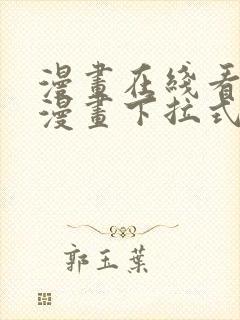 漫畫在綫看
漫畫下拉式
郭玉葉